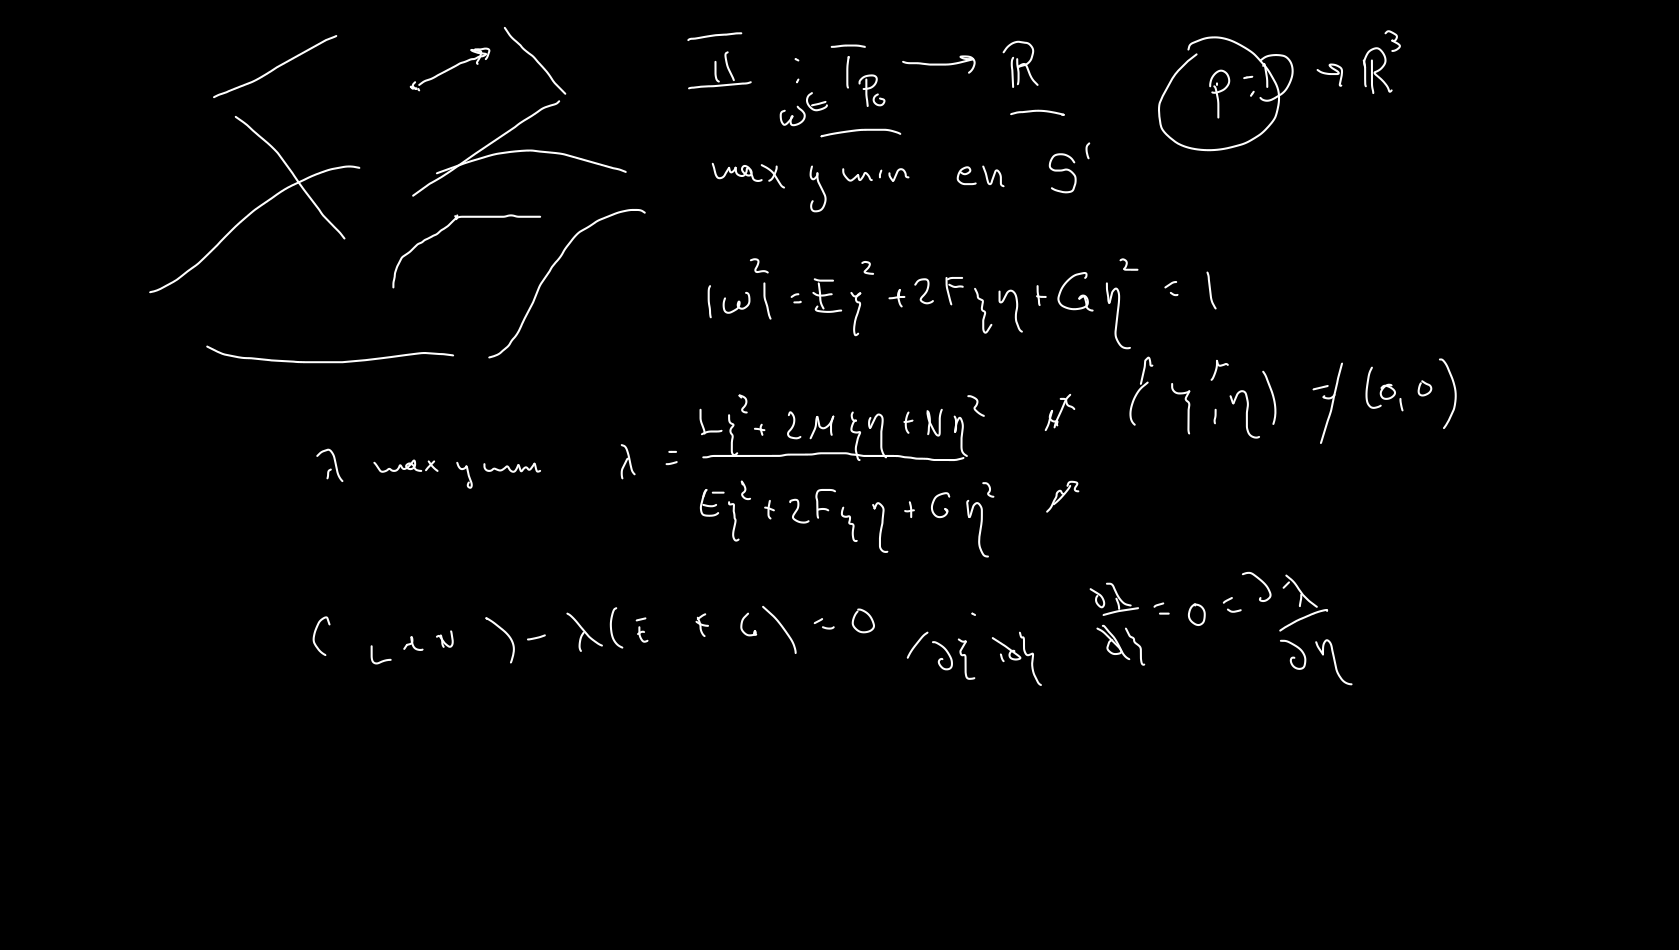 II : T_{P_0} → ℝ   p : D → ℝ³
ω ∈
max y min en S¹
|ω|² = Eξ² + 2Fξη + Gη² = 1
λ max y min   λ = (Lξ² + 2Mξη + Nη²) / (Eξ² + 2Fξη + Gη²)   (ξ, η) ≠ (0,0)
( L + N ) − λ(E + G) = 0   ∂ξ ∂ξ   ∂λ/∂ξ = 0 = ∂λ/∂η